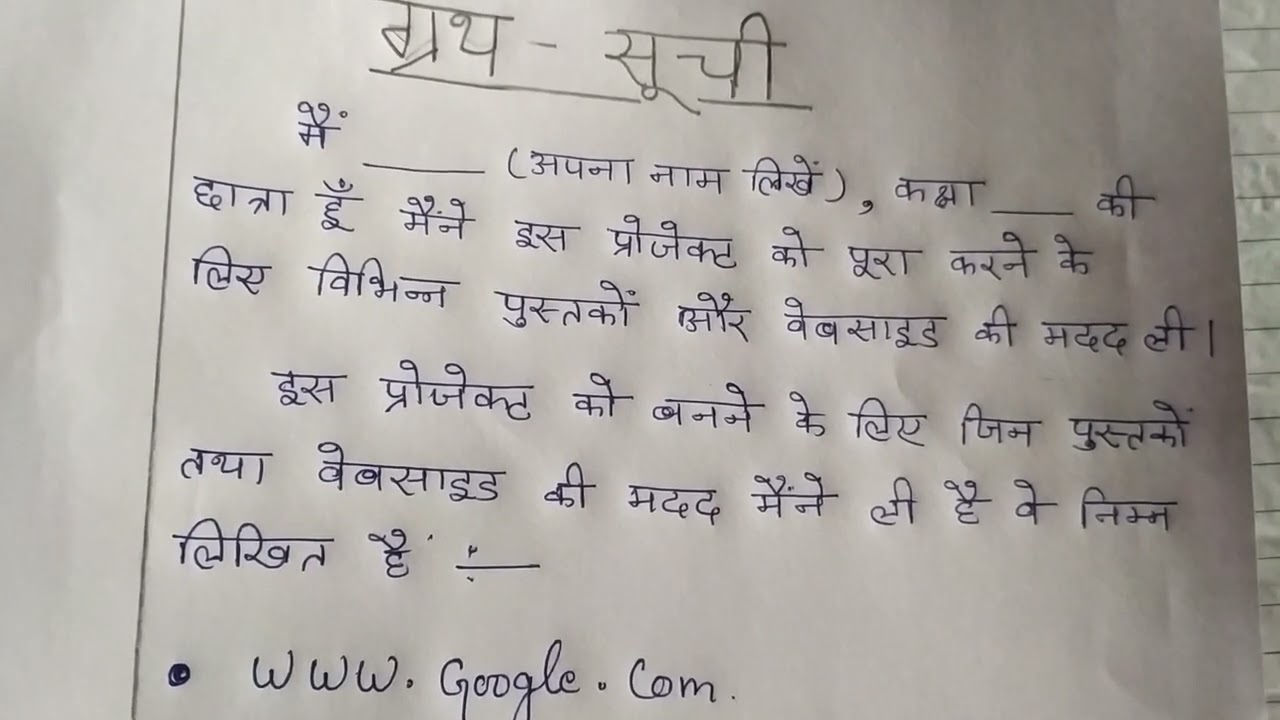 ग्रथ - सूची
मैं ____ (अपना नाम लिखें), कक्षा ___ की
छात्रा हूँ मैंने इस प्रोजेक्ट को पूरा करने के
लिए विभिन्न पुस्तकों और वेबसाइड की मदद ली।
इस प्रोजेक्ट को बनने के लिए जिन पुस्तकों
तथा वेबसाइड की मदद मैंने ली है वे निम्न
लिखित हैं ÷
• www.Google.Com.